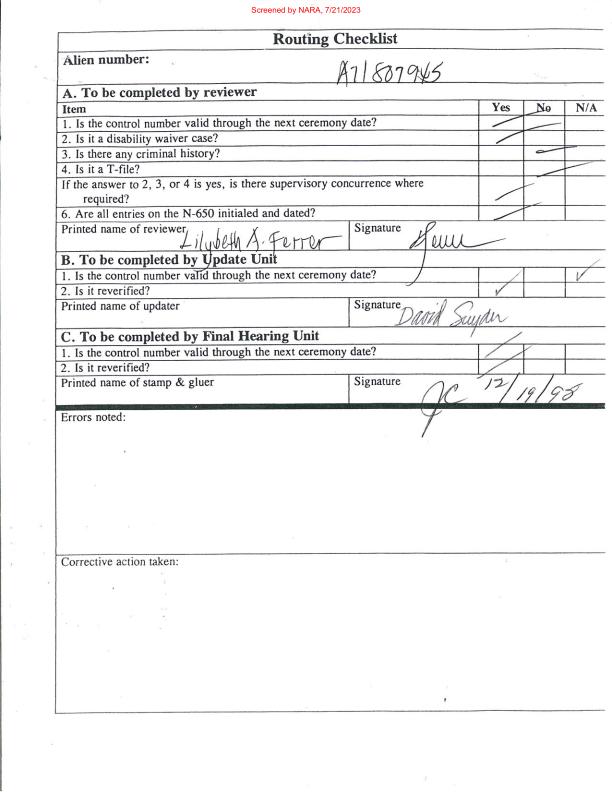 Screened by NARA, 7/21/2023
Routing Checklist
Alien number:
A71807945
A. To be completed by reviewer
Item Yes No N/A
1. Is the control number valid through the next ceremony date?
2. Is it a disability waiver case?
3. Is there any criminal history?
4. Is it a T-file?
If the answer to 2, 3, or 4 is yes, is there supervisory concurrence where
required?
6. Are all entries on the N-650 initialed and dated?
Printed name of reviewer Lilybeth A. Ferrer Signature
B. To be completed by Update Unit
1. Is the control number valid through the next ceremony date?
2. Is it reverified?
Printed name of updater Signature David Snyder
C. To be completed by Final Hearing Unit
1. Is the control number valid through the next ceremony date?
2. Is it reverified?
Printed name of stamp & gluer Signature JC 12/19/98
Errors noted:
Corrective action taken: